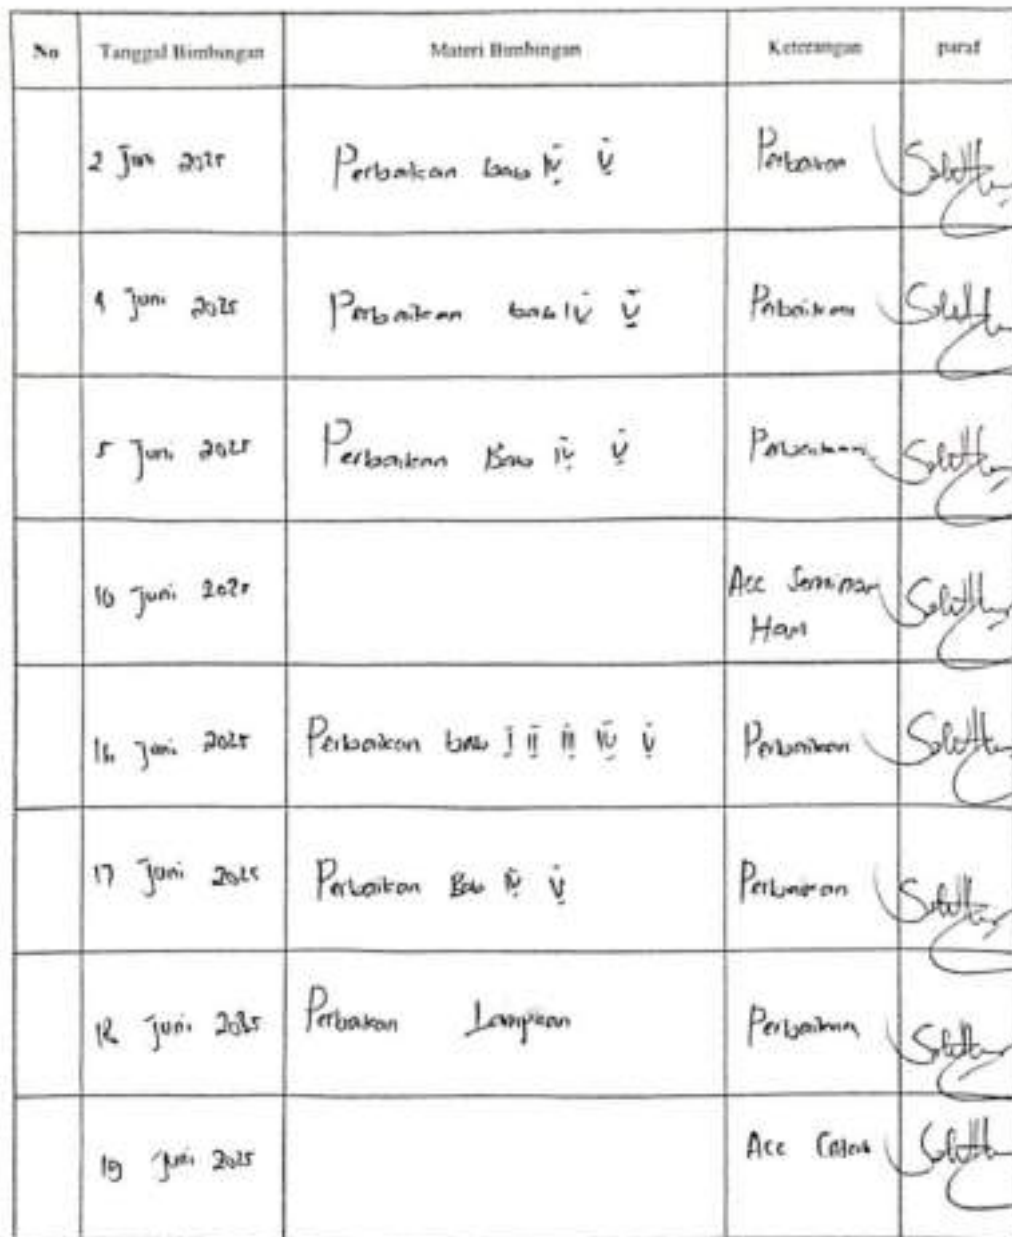 No Tanggal Bimbingan Materi Bimbingan Keterangan paraf
2 Juni 2025 Perbaikan bab IV V Perbaikan
4 Juni 2025 Perbaikan bab IV V Perbaikan
5 Juni 2025 Perbaikan Bab IV V Perbaikan
10 Juni 2025 Acc Seminar
Hasil
16 Juni 2025 Perbaikan bab I II III IV V Perbaikan
17 Juni 2025 Perbaikan Bab IV V Perbaikan
18 Juni 2025 Perbaikan Lampiran Perbaikan
19 Juni 2025 Acc